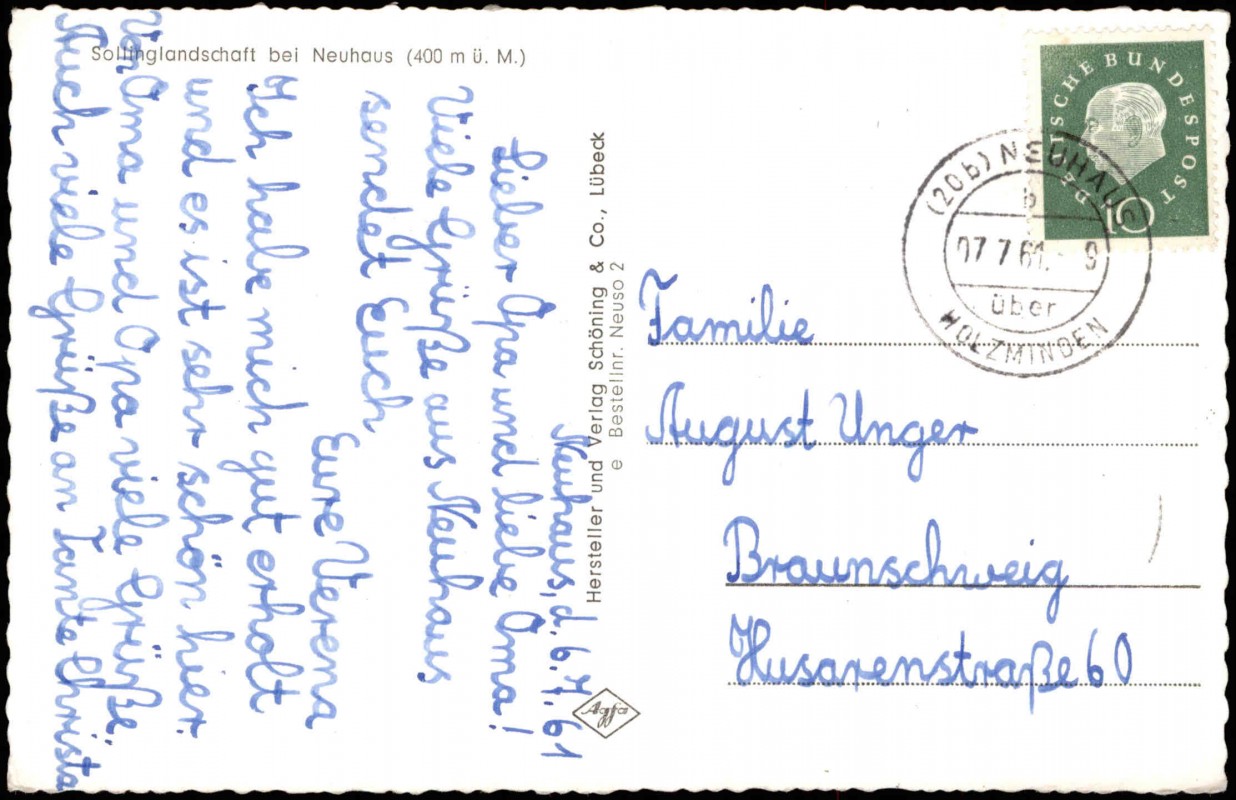 Sollinglandschaft bei Neuhaus (400 m ü. M.)
Neuhaus, d. 6.7.61
Lieber Opa und liebe Oma!
Viele Grüße aus Neuhaus
sendet Euch
Eure Verena
Ich habe mich gut erholt
und es ist sehr schön hier.
Von Oma und Opa viele Grüße.
Auch viele Grüße an Tante Christa
Hersteller und Verlag Schöning & Co., Lübeck
e Bestellnr. Neuso 2
Agfa
DEUTSCHE BUNDESPOST
10
(20b) NEUHAUS
b
07.7.61. - 9
über
HOLZMINDEN
Familie
August Unger
Braunschweig
Husarenstraße 60